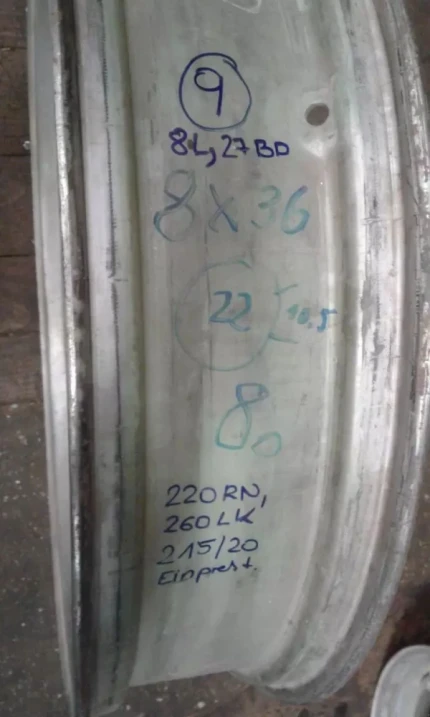 9
8L, 27BD
8x36
22
10.5
80
220RN,
260LK
215/20
Einprest.